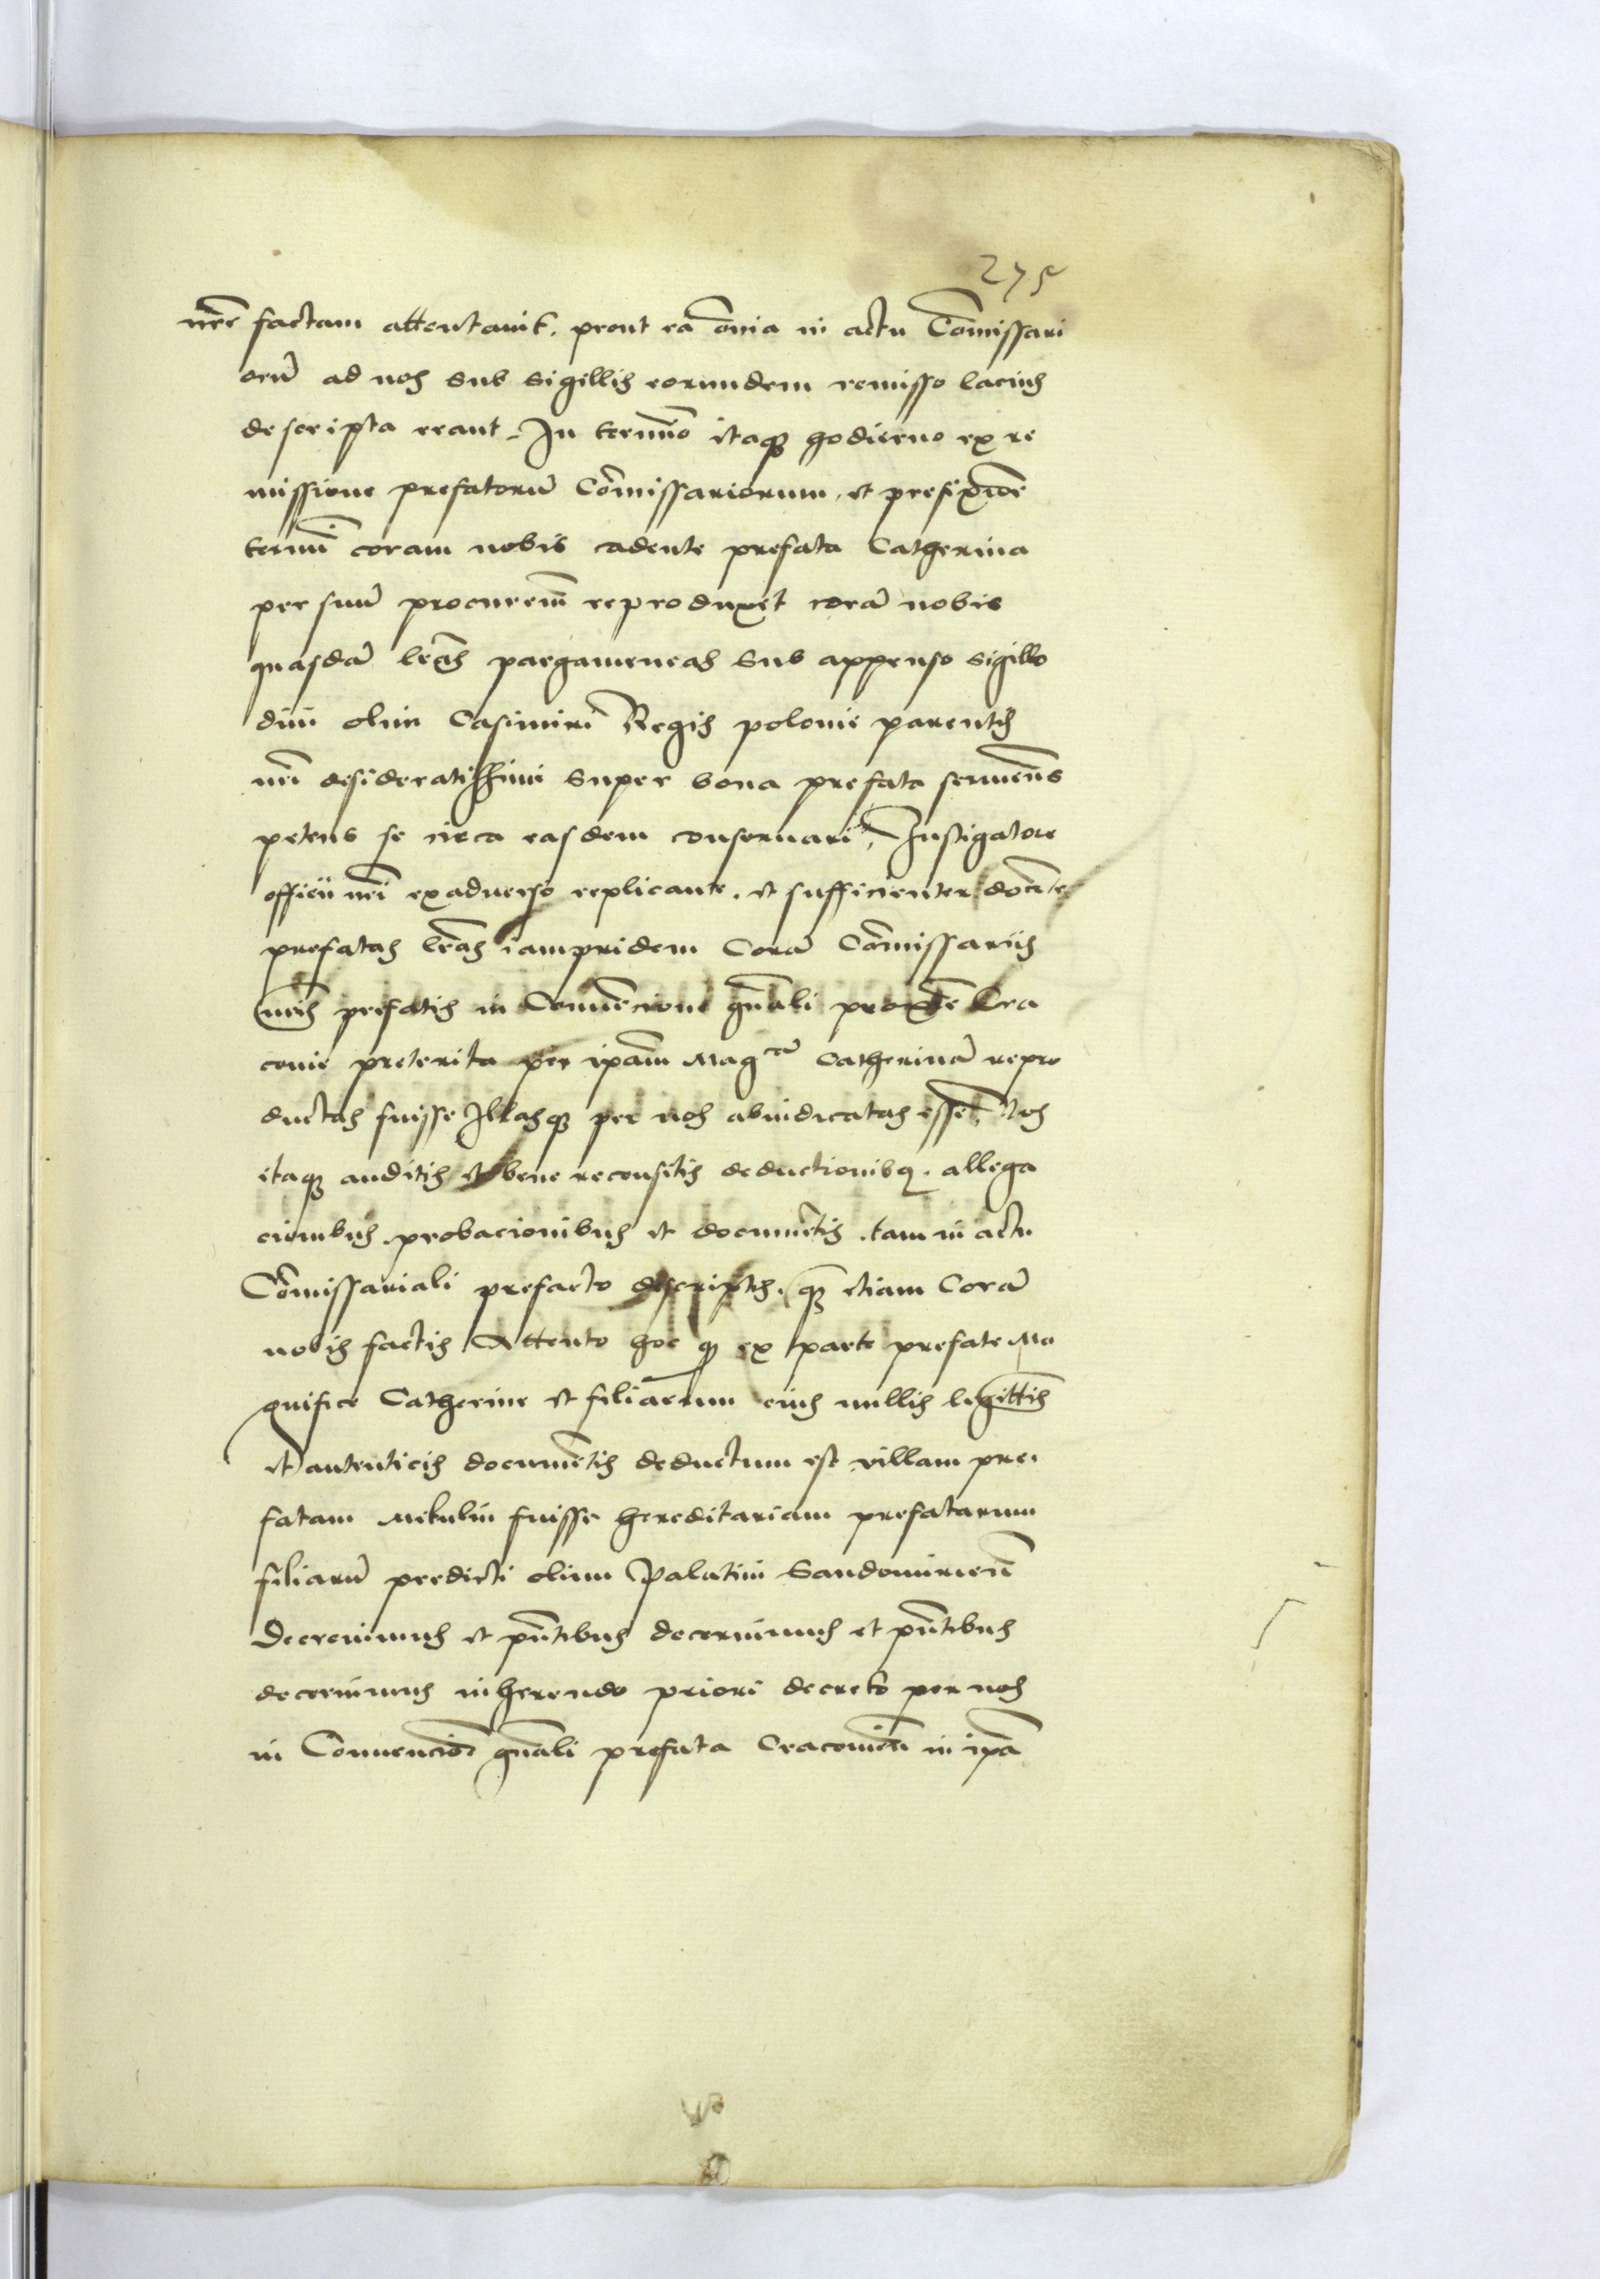 275
nr̄e factam attentauit. prout ea om̄ia in actu Com̄issari
orū ad nos sub sigillis eorundem remisso lacius
descripta erant. In termīo itaq̨ hodierno ex re
missione prefatorū Com̄issariorum, et prefixiōe
termī coram nobis cadente prefata Catherina
per suū procuren̄ reproduxit corā nobis
quasdā lr̄as pargameneas sub appenso sigillo
diui olim Casimiri Regis polonie parentis
nr̄i desideratissimi super bona prefata seruien̄s
petens se circa easdem conseruari, Instigatore
officii nr̄i exaduerso replicante. et sufficienter docēte
prefatas lr̄as iampridem Corā Com̄issariis
nr̄is prefatis in Conuēcione gn̄ali proxīe Cra
couie preterita per ip̄am Mag^cā Catherinā repro
ductas fuisse Illasq̨ per nos abiudicatas esse, Nos
itaq̨ auditis et bene recensitis deductionibq. allega
cionibus. probacionibus et documētis. tam in actu
Com̄issariali prefacto descriptis. q̄ȝ etiam Corā
nobis factis Attento hoc q̨ ex parte prefate Ma
gnifice Catherine et filiarum eius nullis legittīs
et autenticis documētis deductum est villam pre
fatam Mikulin fuisse hereditariam prefatarum
filiarū predicti olim Palatini Sandomirien̄
Decreuimus et pn̄tibus decernimus et pn̄tibus
decernimus inherendo priori decreto per nos
in Conuenciōe gn̄ali prefata Cracouien̄ in ip̄a